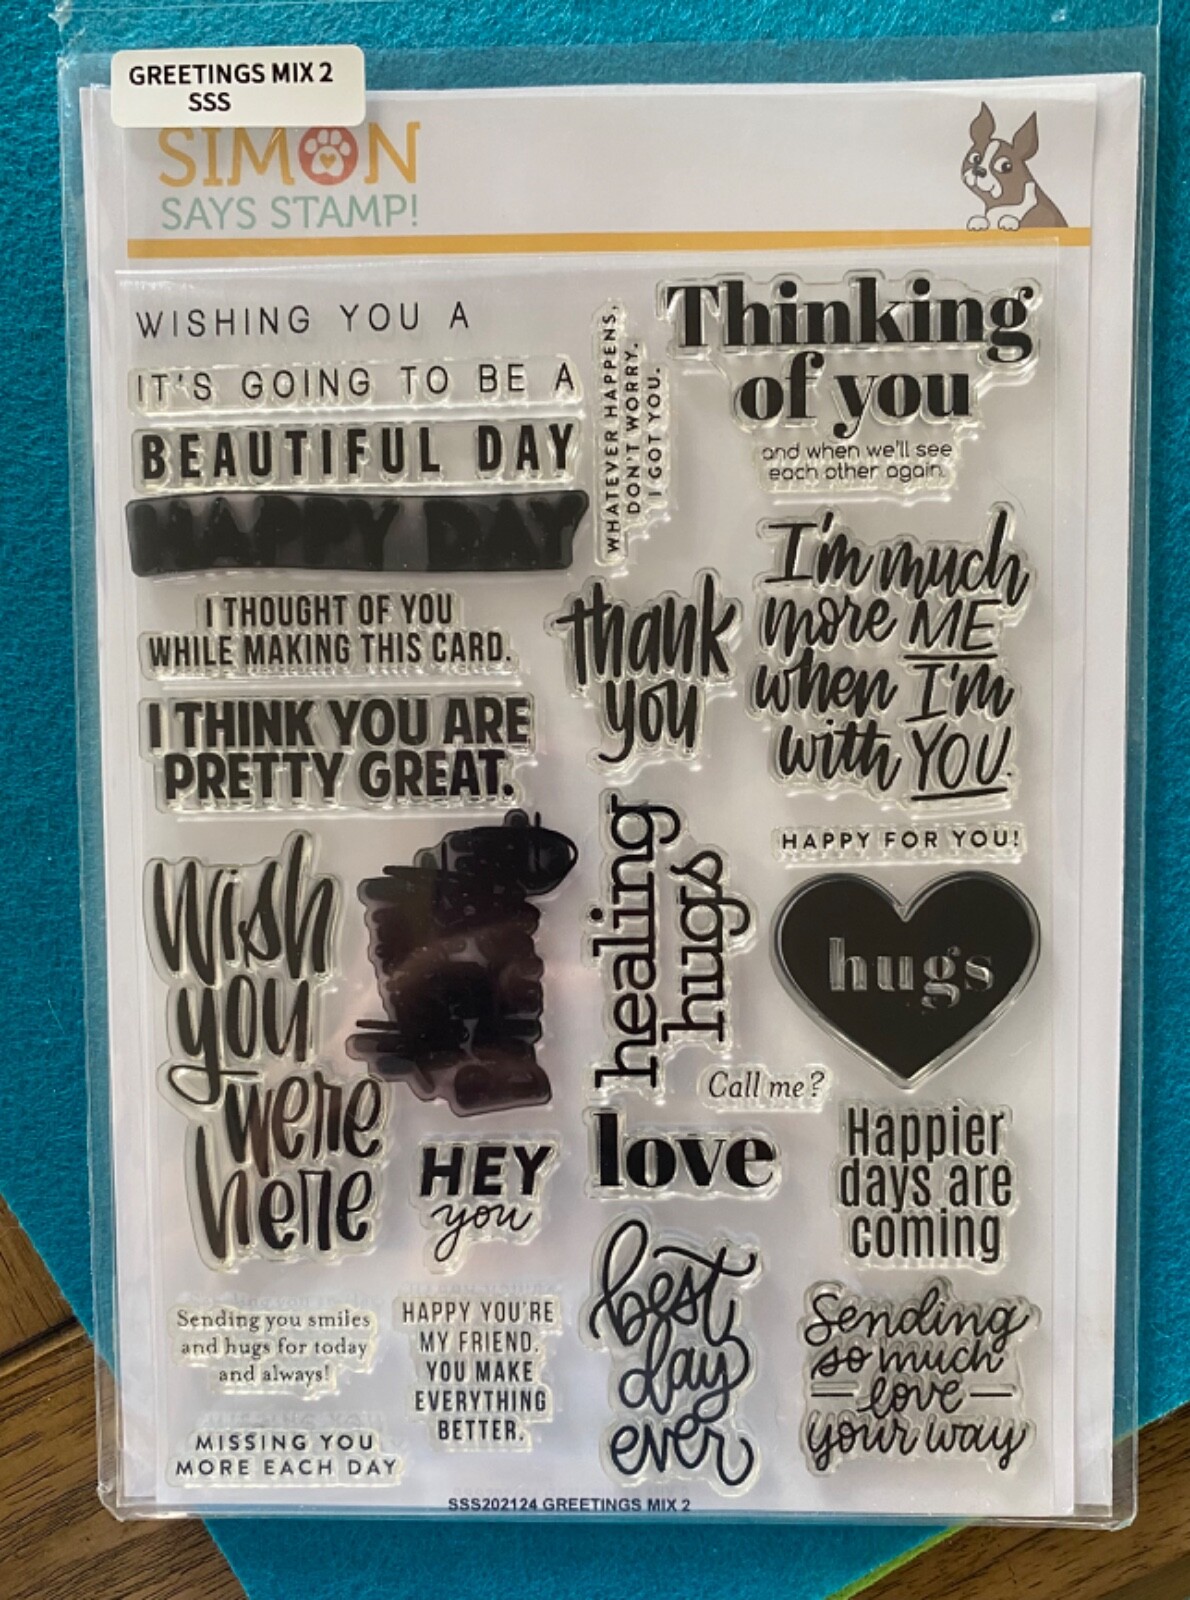 GREETINGS MIX 2
SSS
SIMON
SAYS STAMP!
WISHING YOU A
IT'S GOING TO BE A
BEAUTIFUL DAY
HAPPY DAY
WHATEVER HAPPENS,
DON'T WORRY.
I GOT YOU.
Thinking
of you
and when we'll see
each other again.
I THOUGHT OF YOU
WHILE MAKING THIS CARD.
thank
you
I'm much
more ME
when I'm
with YOU.
I THINK YOU ARE
PRETTY GREAT.
HAPPY FOR YOU!
wish
you
were
here
healing
hugs
hugs
Call me?
love
Happier
days are
coming
HEY
you
best
day
ever
Sending
so much
love
your way
Sending you smiles
and hugs for today
and always!
HAPPY YOU'RE
MY FRIEND.
YOU MAKE
EVERYTHING
BETTER.
MISSING YOU
MORE EACH DAY
SSS202124 GREETINGS MIX 2